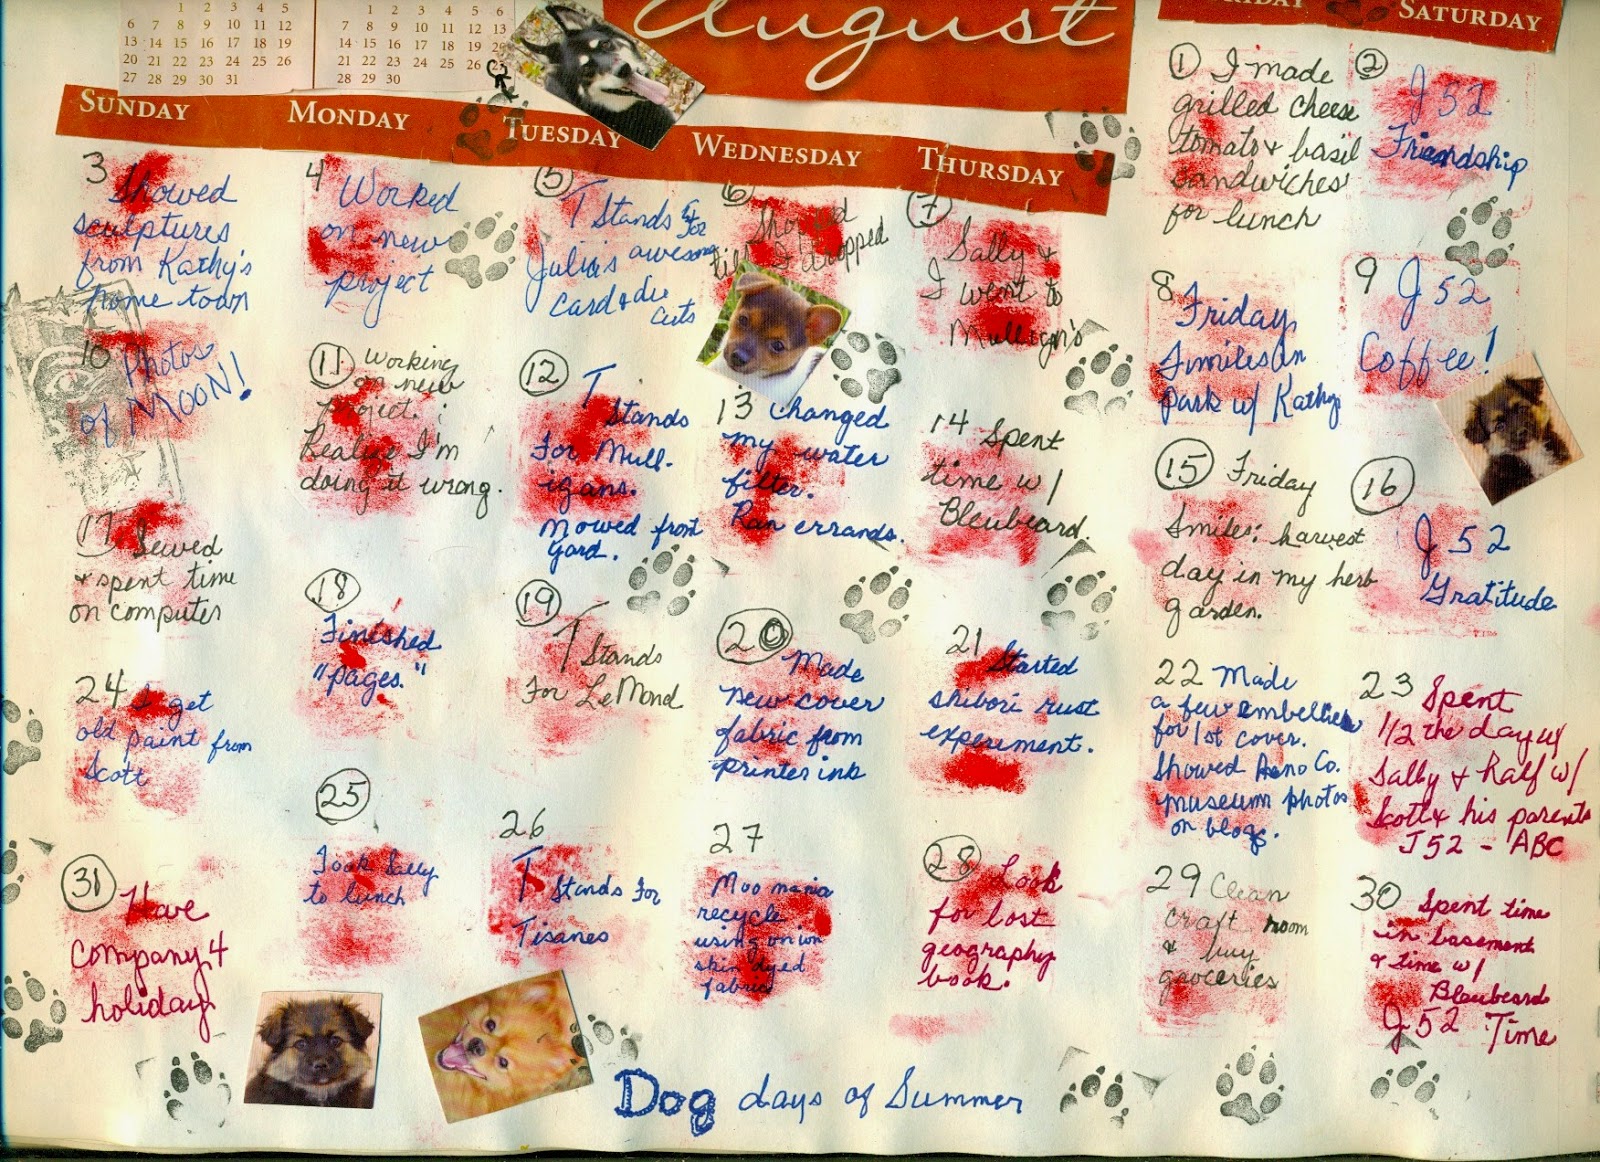 1 2 3 4 5
6 7 8 9 10 11 12
13 14 15 16 17 18 19
20 21 22 23 24 25 26
27 28 29 30 31
1 2 3 4 5 6
7 8 9 10 11 12 13
14 15 16 17 18 19
21 22 23 24 25 26
28 29 30
August
SATURDAY
SUNDAY
MONDAY
TUESDAY
WEDNESDAY
THURSDAY
1 I made
grilled cheese
tomato & basil
sandwiches
for lunch
2
J 52
Friendship
3 Showed
sculptures
from Kathy's
home town
4 Worked
on new
project
5
T Stands For
Julia's awesome
card & die
cuts
6
Showed
I dropped
7
Sally &
I went to
Mulligan's
8
Friday
Smiles in
Park w/ Kathy
9 J 52
Coffee!
10 Photos
of MOON!
11 Working
on new
project.
Realize I'm
doing it wrong.
12 T
Stands
For Mull-
igans.
Mowed front
yard.
13 Changed
my water
filter.
Ran errands.
14 Spent
time w/
Bleubeard.
15 Friday
Smiles: harvest
day in my herb
garden.
16
J 52
Gratitude
17 Sewed
& spent time
on computer
18
Finished
"pages."
19
T Stands
For LeMond
20
Made
new cover
fabric from
printer ink
21 Started
shibori rust
experiment.
22 Made
a few embellies
for 1st cover.
Showed Reno Co.
museum photos
on blog.
23 Spent
1/2 the day w/
Sally & half w/
Scott & his parents
J 52 - ABC
24 I get
old paint from
Scott
25
Took Sally
to lunch
26
T Stands For
Tisanes
27
Moo mania
recycle
using onion
skin dyed
fabric
28 Look
for lost
geography
book.
29 Clean
craft room
& buy
groceries
30 Spent time
in basement
& time w/
Bleubeard
J 52 Time
31 Have
company 4
holiday
Dog days of Summer